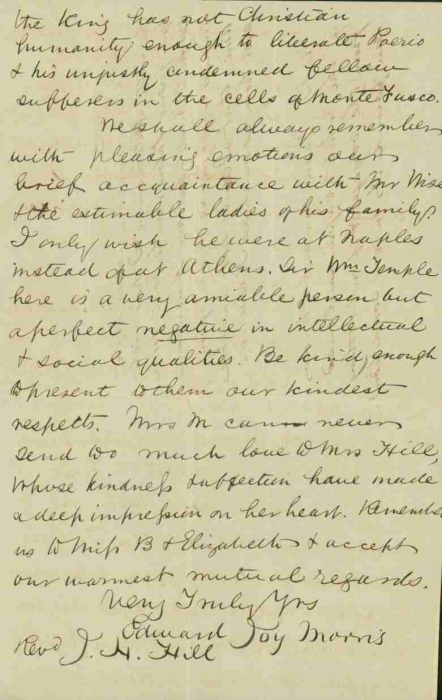 the King has not Christian
humanity enough to liberate Poerio
& his unjustly condemned fellow
sufferers in the cells of Monte Fusco.
We shall always remember
with pleasing emotions our
brief acquaintance with Mr Wise
& the estimable ladies of his family.
I only wish he were at Naples
instead of at Athens. Sir Wm Temple
here is a very amiable person but
a perfect negative in intellectual
& social qualities. Be kind enough
to present to them our kindest
respects. Mrs M can never
send too much love to Mrs Hill,
whose kindness & affection have made
a deep impression on her heart. Remember
us to Miss B & Elizabeth & accept
our warmest mutual regards.
Very Truly Yrs
Edward Joy Morris
Revd J. H. Hill